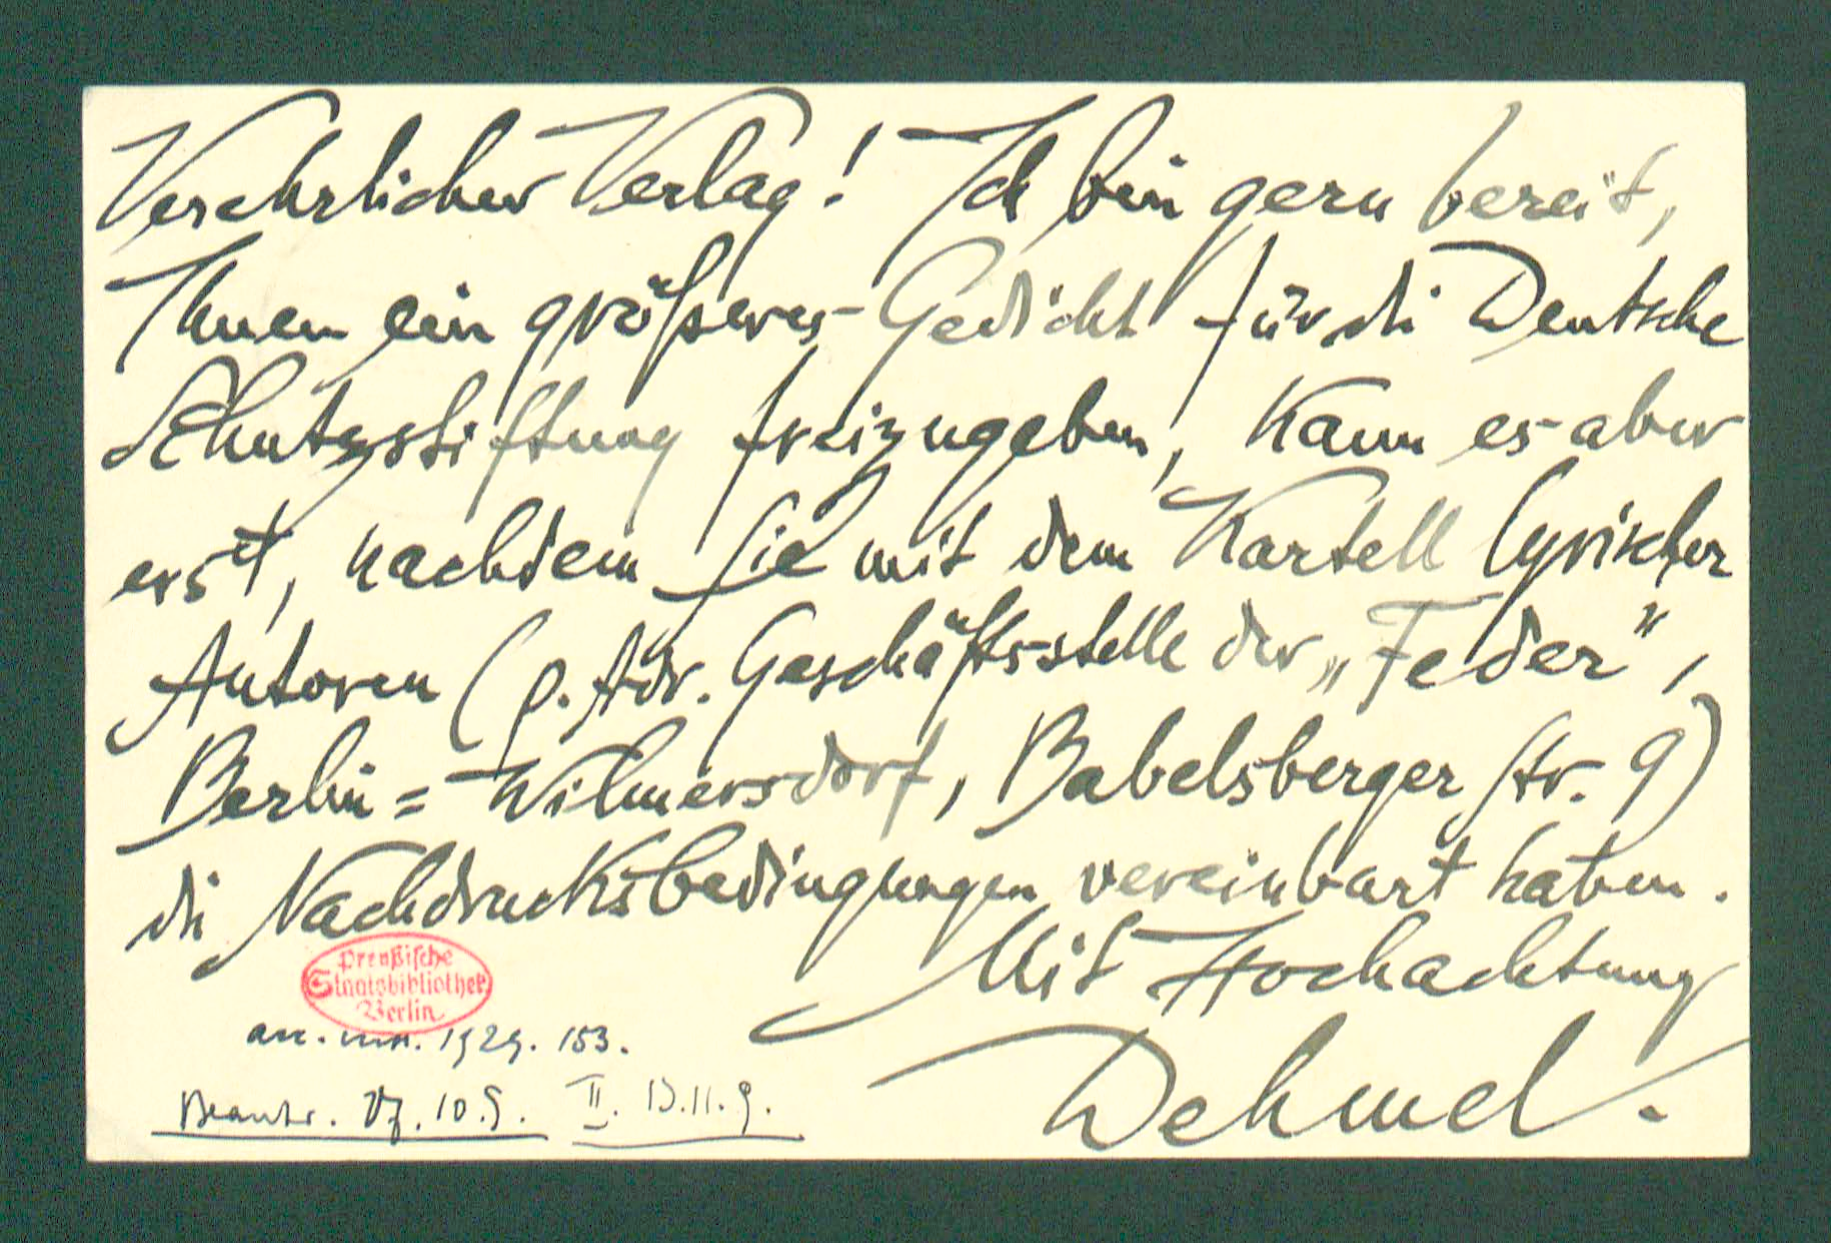 Verehrlicher Verlag! Ich bin gern bereit,
Ihnen ein größeres Gedicht für die Deutsche
Schutzstiftung freizugeben, kann es aber
erst, nachdem Sie mit dem Kartell lyrischer
Autoren (p. Adr. Geschäftsstelle der „Feder",
Berlin = Wilmersdorf, Babelsberger Str. 9)
die Nachdrucksbedingungen vereinbart haben.
Mit Hochachtung
Dehmel.
Preußische
Staatsbibliothek
Berlin
acc. ms. 1929. 153.
Beantw. 27.10.9. II. 13.11.9.